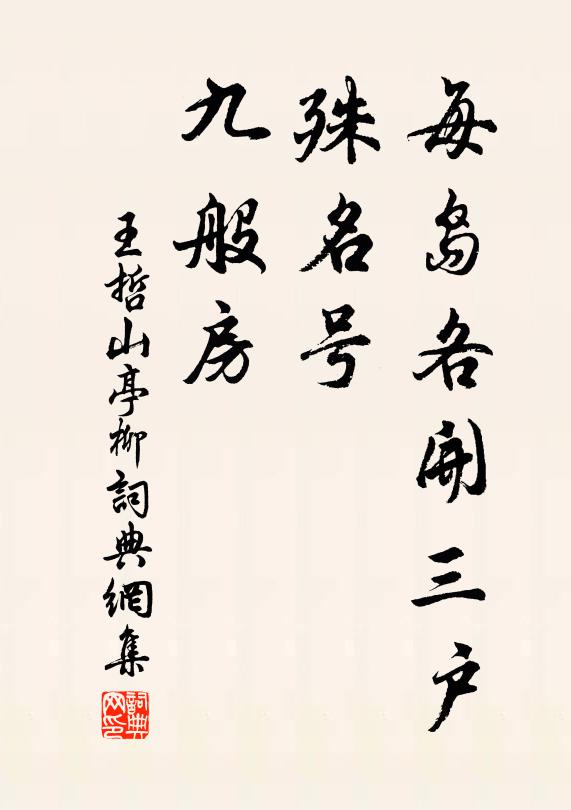 每岛各開三户
殊名号
九般房
王哲山亭柳詞典網集
詞典网印